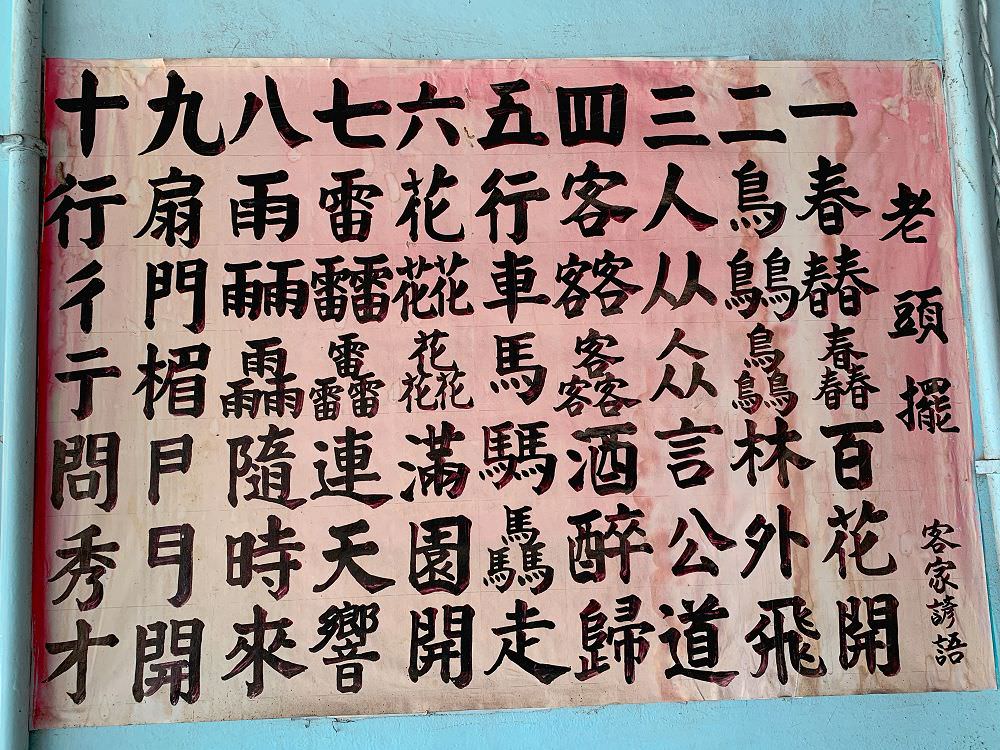 老頭擺 客家諺語
一春春春春春春百花開
二鳥鳥鳥鳥鳥鳥林外飛
三人从众言公道
四客客客客客客酒醉歸
五行車馬𩡧驫走
六花花花花花花滿園開
七雷雷雷雷雷雷連天響
八雨雨雨雨雨雨隨時來
九扇門楣𠁣𠃛開
十行彳亍問秀才